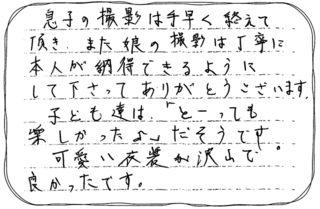 息子の撮影は手早く終えて
頂き また娘の撮影は丁寧に
本人が納得できるように
して下さってありがとうございます。
子ども達は「とーっても
楽しかったよ」だそうです。
可愛い衣装が沢山で
良かったです。